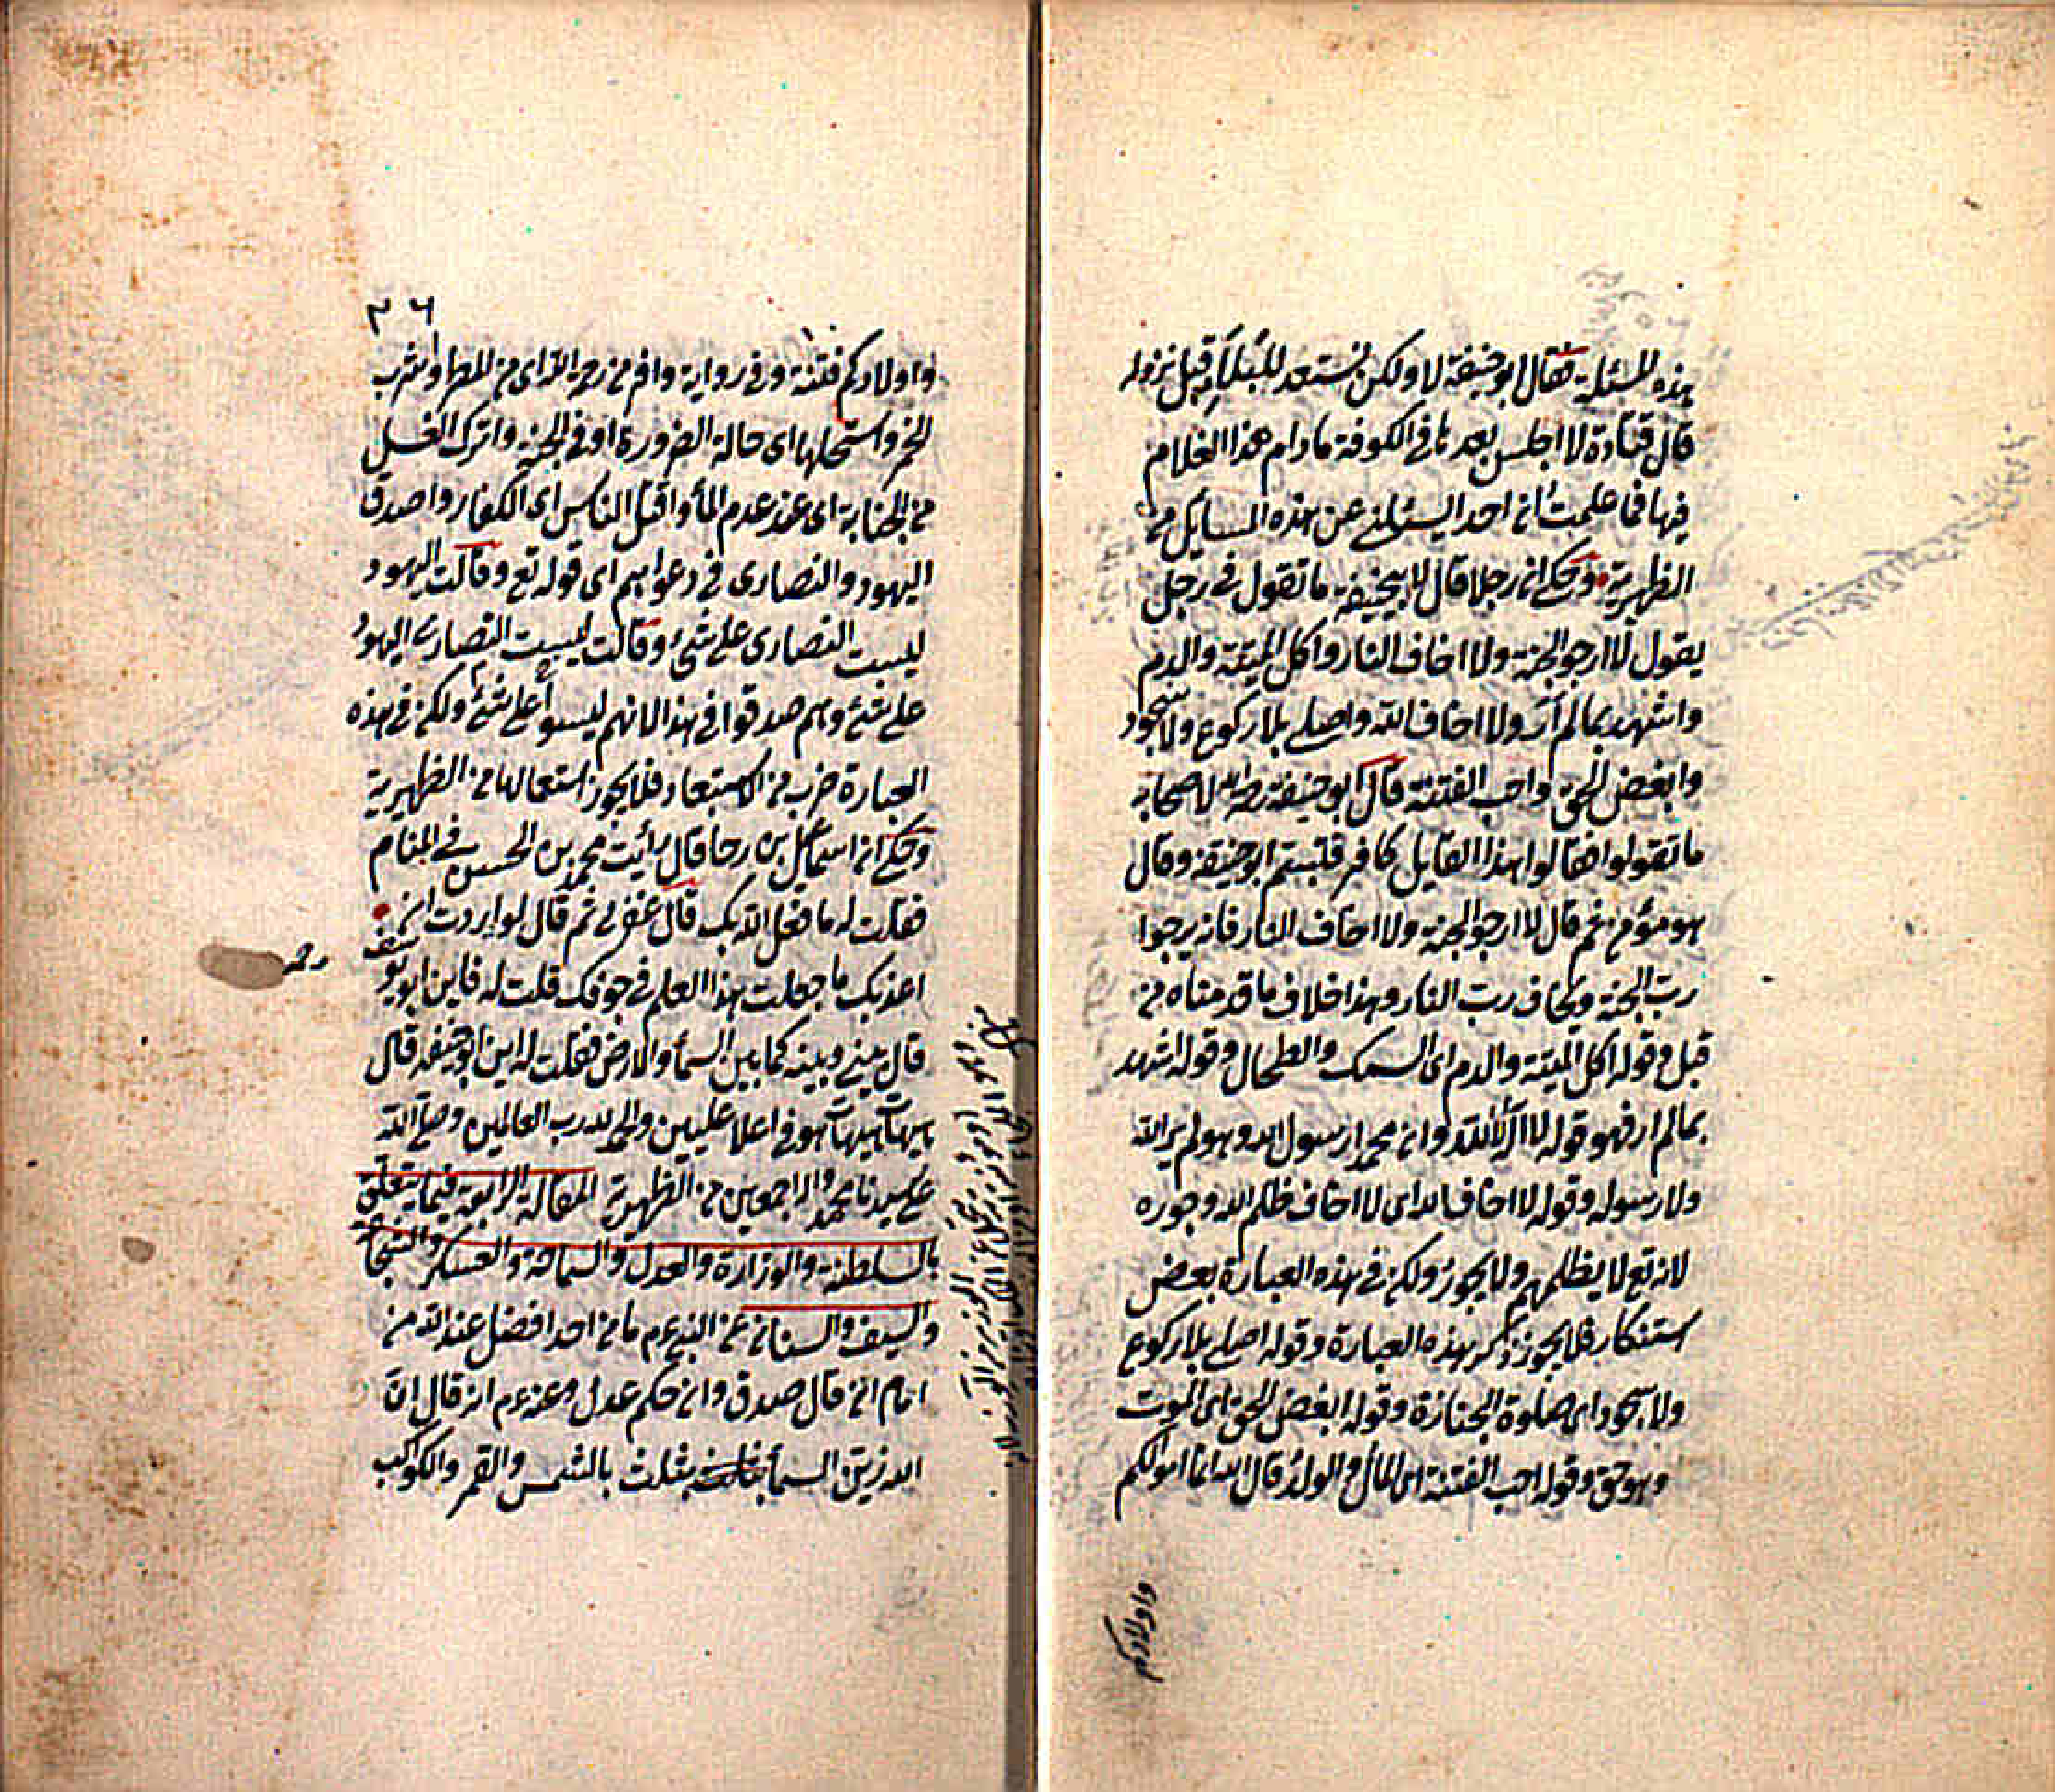 هذه المسئلة فقال ابو حنيفة لا ولكن نستعد للبلاء قبل نزوله
قال قتادة لا اجلس بعد ما في الكوفة ما دام هذا الغلام
فيها فما علمت ان احدا يسئلني عن هذه المسايل من
الظهيرية وحكي ان رجلا قال لابيحنيفة ما تقول في رجل
يقول لا ارجو الجنة ولا اخاف النار واكل الميتة والدم
واشهد بما لم ار ولا اخاف الله واصلي بلا ركوع ولا سجود
وابغض الحق واحب الفتنة قال ابو حنيفة رضي الله لاصحابه
ما تقولوا فقالوا هذا القايل كافر فتبسم ابو حنيفة وقال
هو مؤمن ثم قال لا ارجو الجنة ولا اخاف النار فانه يرجوا
رب الجنة ويخاف رب النار وهذا خلاف ما قدمناه من
قبل وقوله اكل الميتة والدم اي السمك والطحال وقوله اشهد
بما لم ار فهو قوله لا اله الا الله وان محمدا رسول الله وهو لم ير الله
ولا رسوله وقوله لا اخاف الله اى لا اخاف ظلم الله وجوره
لانه تع لا يظلمهم ولا يجور ولكن في هذه العبارة بعض
استنكار فلا يجوز ذكر بهذه العبارة وقوله اصلي بلا ركوع
ولا سجود اى صلوة الجنازة وقوله ابغض الحق اى الموت
وهو حق وقوله احب الفتنة اى المال والولد قال الله انما اموالكم
واولادكم
٣٦
واولادكم فتنة وفي رواية وافر من رحمة الله اى من المطر واشرب
الخمر واستحلها اى حالة الضرورة او في الجنة واترك الغسل
من الجنابة اى عند عدم الماء واقتل الناس اى الكفار واصدق
اليهود والنصارى في دعواهم اى قوله تع وقالت اليهود
ليست النصارى على شئ وقالت ليست النصارى اليهود
على شئ وهم صدقوا في هذا لانهم ليسوا على شئ ولكن في هذه
العبارة ضرب من الاستبعاد فلا يجوز استعمالها من الظهيرية
وحكي ان اسماعيل بن رجا قال رأيت محمد بن الحسن في المنام
فقلت له ما فعل الله بك قال غفر لي ثم قال لو اردت ان
اعذبك ما جعلت هذا العلم في جوفك قلت له فاين ابو يوسف
رحمه
قال بيني وبينه كما بين السماء والارض فقلت له اين ابو حنيفة قال
هيهات هيهات هو في اعلا عليين والحمد لله رب العالمين وصلى الله
على سيدنا محمد واله اجمعين من الظهيرية المقالة الرابعة فيما يتعلق
بالسلطنة والوزارة والعدل والسياسة والعسكر والشجاعة
والسيف والسنان عن النبي عم ما من احد افضل عند الله من
امام ان قال صدق وان حكم عدل وعنه عم انه قال ان
الله زين السماء بثلث بالشمس والقمر والكواكب